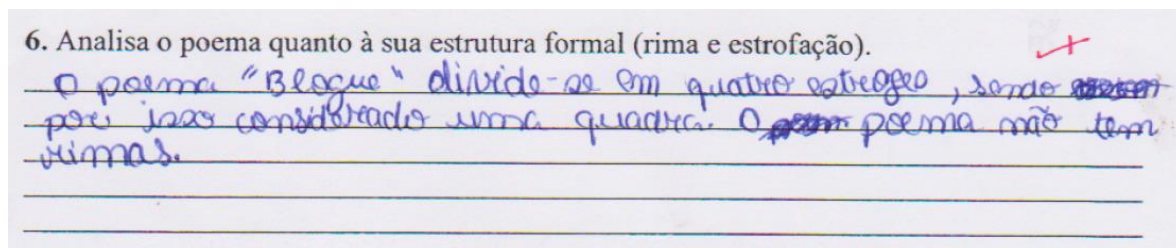 6. Analisa o poema quanto à sua estrutura formal (rima e estrofação).
O poema "Bloque" divide-se em quatro estrofes, sendo
por isso considerado uma quadra. O poema não tem
rimas.